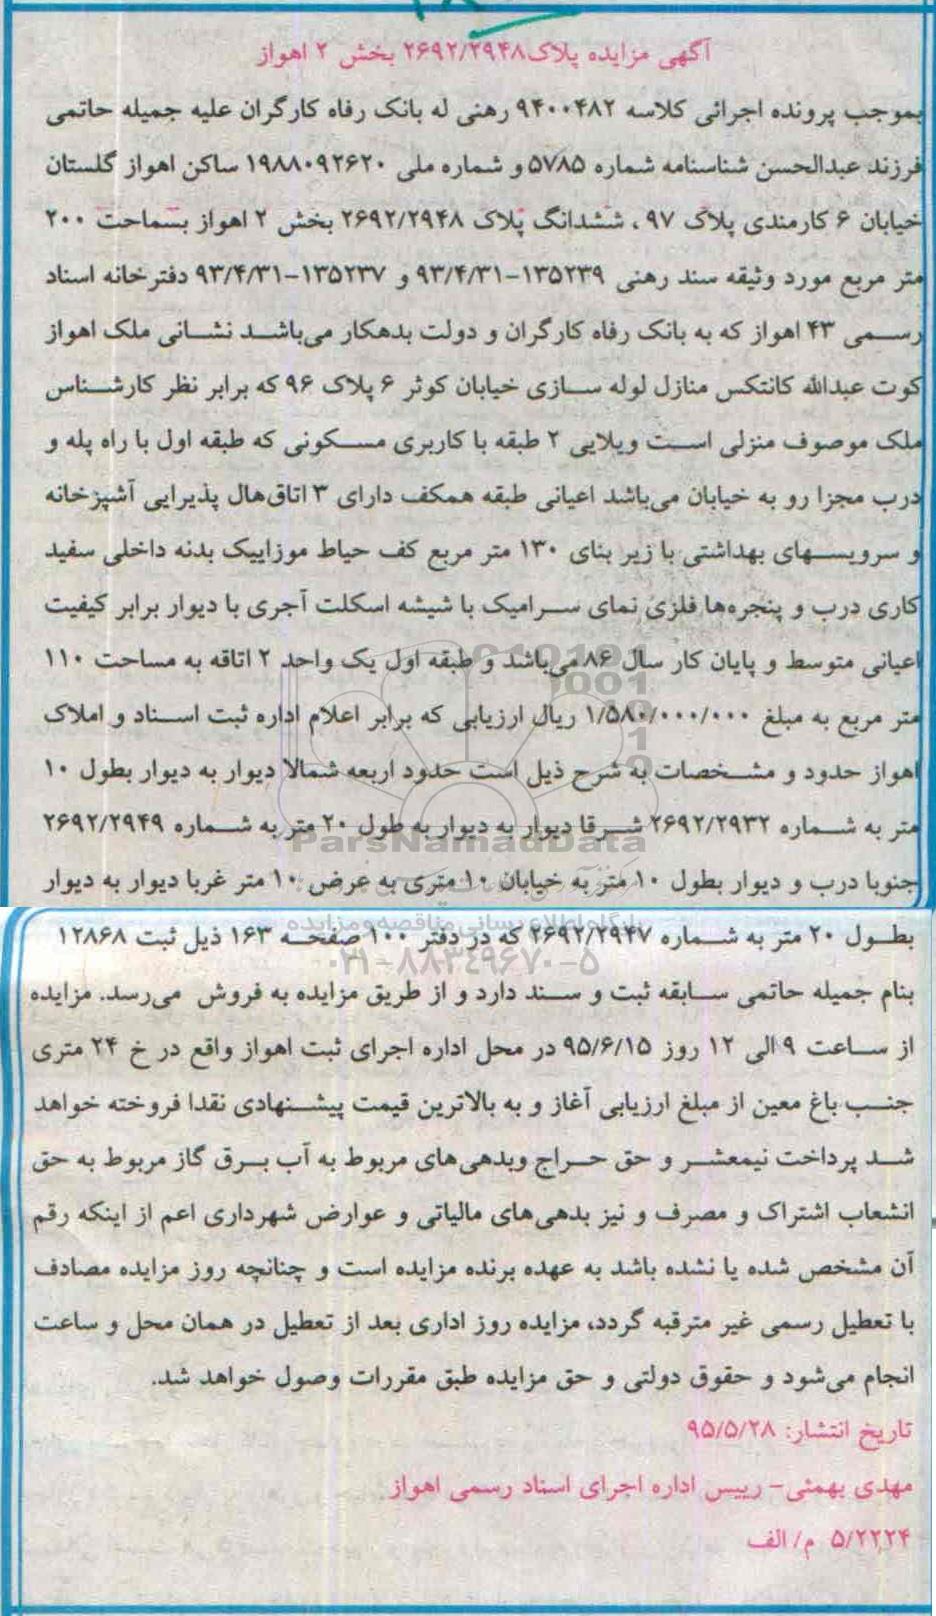 آگهی مزایده پلاک۲۶۹۲/۲۹۴۸ بخش ۲ اهواز
بموجب پرونده اجرائی کلاسه ۹۴۰۰۴۸۲ رهنی له بانک رفاه کارگران علیه جمیله حاتمی
فرزند عبدالحسن شناسنامه شماره ۵۷۸۵ و شماره ملی ۱۹۸۸۰۹۲۶۲۰ ساکن اهواز گلستان
خیابان ۶ کارمندی پلاک ۹۷ ، ششدانگ پلاک ۲۶۹۲/۲۹۴۸ بخش ۲ اهواز بسماحت ۲۰۰
متر مربع مورد وثیقه سند رهنی ۱۳۵۲۳۹-۹۳/۴/۳۱ و ۱۳۵۲۳۷-۹۳/۴/۳۱ دفترخانه اسناد
رسمی ۴۳ اهواز که به بانک رفاه کارگران و دولت بدهکار می‌باشد نشانی ملک اهواز
کوت عبدالله کانتکس منازل لوله سازی خیابان کوثر ۶ پلاک ۹۶ که برابر نظر کارشناس
ملک موصوف منزلی است ویلایی ۲ طبقه با کاربری مسکونی که طبقه اول با راه پله و
درب مجزا رو به خیابان می‌باشد اعیانی طبقه همکف دارای ۳ اتاق‌هال پذیرایی آشپزخانه
و سرویسهای بهداشتی با زیر بنای ۱۳۰ متر مربع کف حیاط موزاییک بدنه داخلی سفید
کاری درب و پنجره‌ها فلزی نمای سرامیک با شیشه اسکلت آجری با دیوار برابر کیفیت
اعیانی متوسط و پایان کار سال ۸۶ می‌باشد و طبقه اول یک واحد ۲ اتاقه به مساحت ۱۱۰
متر مربع به مبلغ ۱/۵۸۰/۰۰۰/۰۰۰ ریال ارزیابی که برابر اعلام اداره ثبت اسناد و املاک
اهواز حدود و مشخصات به شرح ذیل است حدود اربعه شمالا دیوار به دیوار بطول ۱۰
متر به شماره ۲۶۹۲/۲۹۳۲ شرقا دیوار به دیوار به طول ۲۰ متر به شماره ۲۶۹۲/۲۹۴۹
جنوبا درب و دیوار بطول ۱۰ متر به خیابان ۱۰ متری به عرض ۱۰ متر غربا دیوار به دیوار
بطول ۲۰ متر به شماره ۲۶۹۲/۲۹۴۷ که در دفتر ۱۰۰ صفحه ۱۶۳ ذیل ثبت ۱۲۸۶۸
بنام جمیله حاتمی سابقه ثبت و سند دارد و از طریق مزایده به فروش می‌رسد. مزایده
از ساعت ۹ الی ۱۲ روز ۹۵/۶/۱۵ در محل اداره اجرای ثبت اهواز واقع در خ ۲۴ متری
جنب باغ معین از مبلغ ارزیابی آغاز و به بالاترین قیمت پیشنهادی نقدا فروخته خواهد
شد پرداخت نیمعشر و حق حراج وبدهی‌های مربوط به آب برق گاز مربوط به حق
انشعاب اشتراک و مصرف و نیز بدهی‌های مالیاتی و عوارض شهرداری اعم از اینکه رقم
آن مشخص شده یا نشده باشد به عهده برنده مزایده است و چنانچه روز مزایده مصادف
با تعطیل رسمی غیر مترقبه گردد، مزایده روز اداری بعد از تعطیل در همان محل و ساعت
انجام می‌شود و حقوق دولتی و حق مزایده طبق مقررات وصول خواهد شد.
تاریخ انتشار: ۹۵/۵/۲۸
مهدی بهمئی- رییس اداره اجرای اسناد رسمی اهواز
۵/۲۲۲۴ م/الف
ParsNamadData
پایگاه اطلاع رسانی مناقصه و مزایده
۰۲۱-۸۸۳۴۹۶۷۰-۵